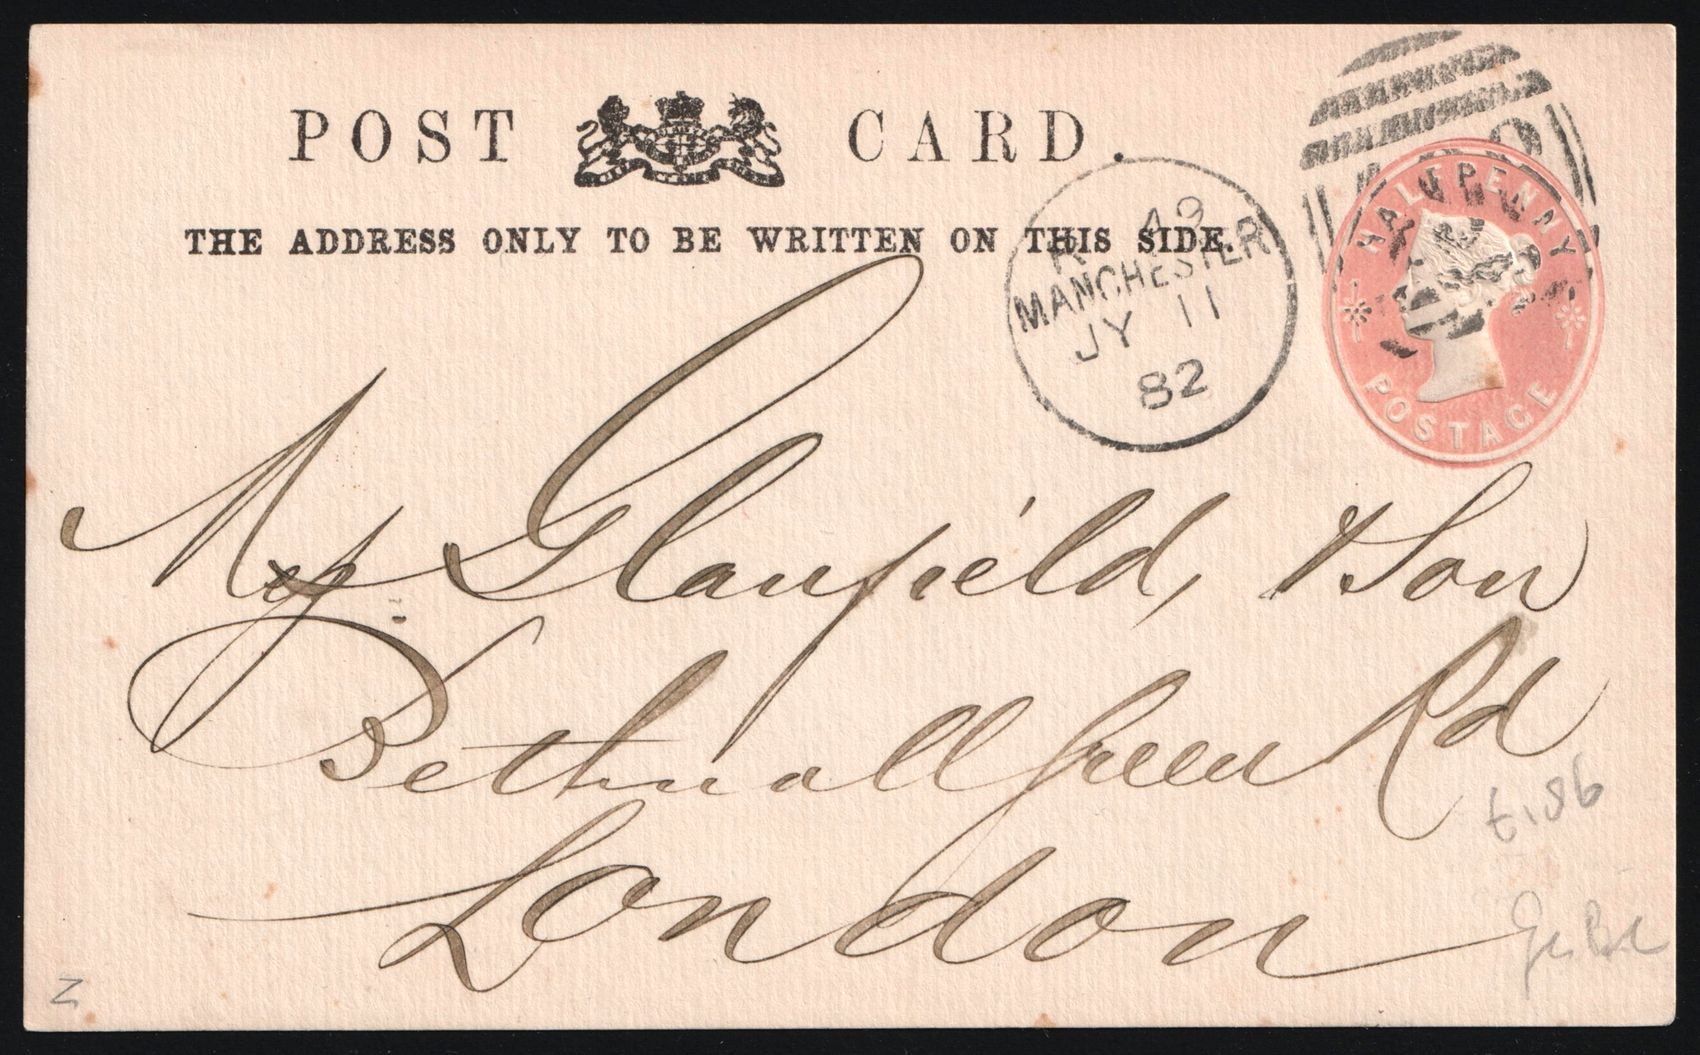 POST CARD.
THE ADDRESS ONLY TO BE WRITTEN ON THIS SIDE.
49
MANCHESTER
JY 11
82
HALFPENNY
POSTAGE
Glanfield, & Son
Bethnall Green Rd
London
Z